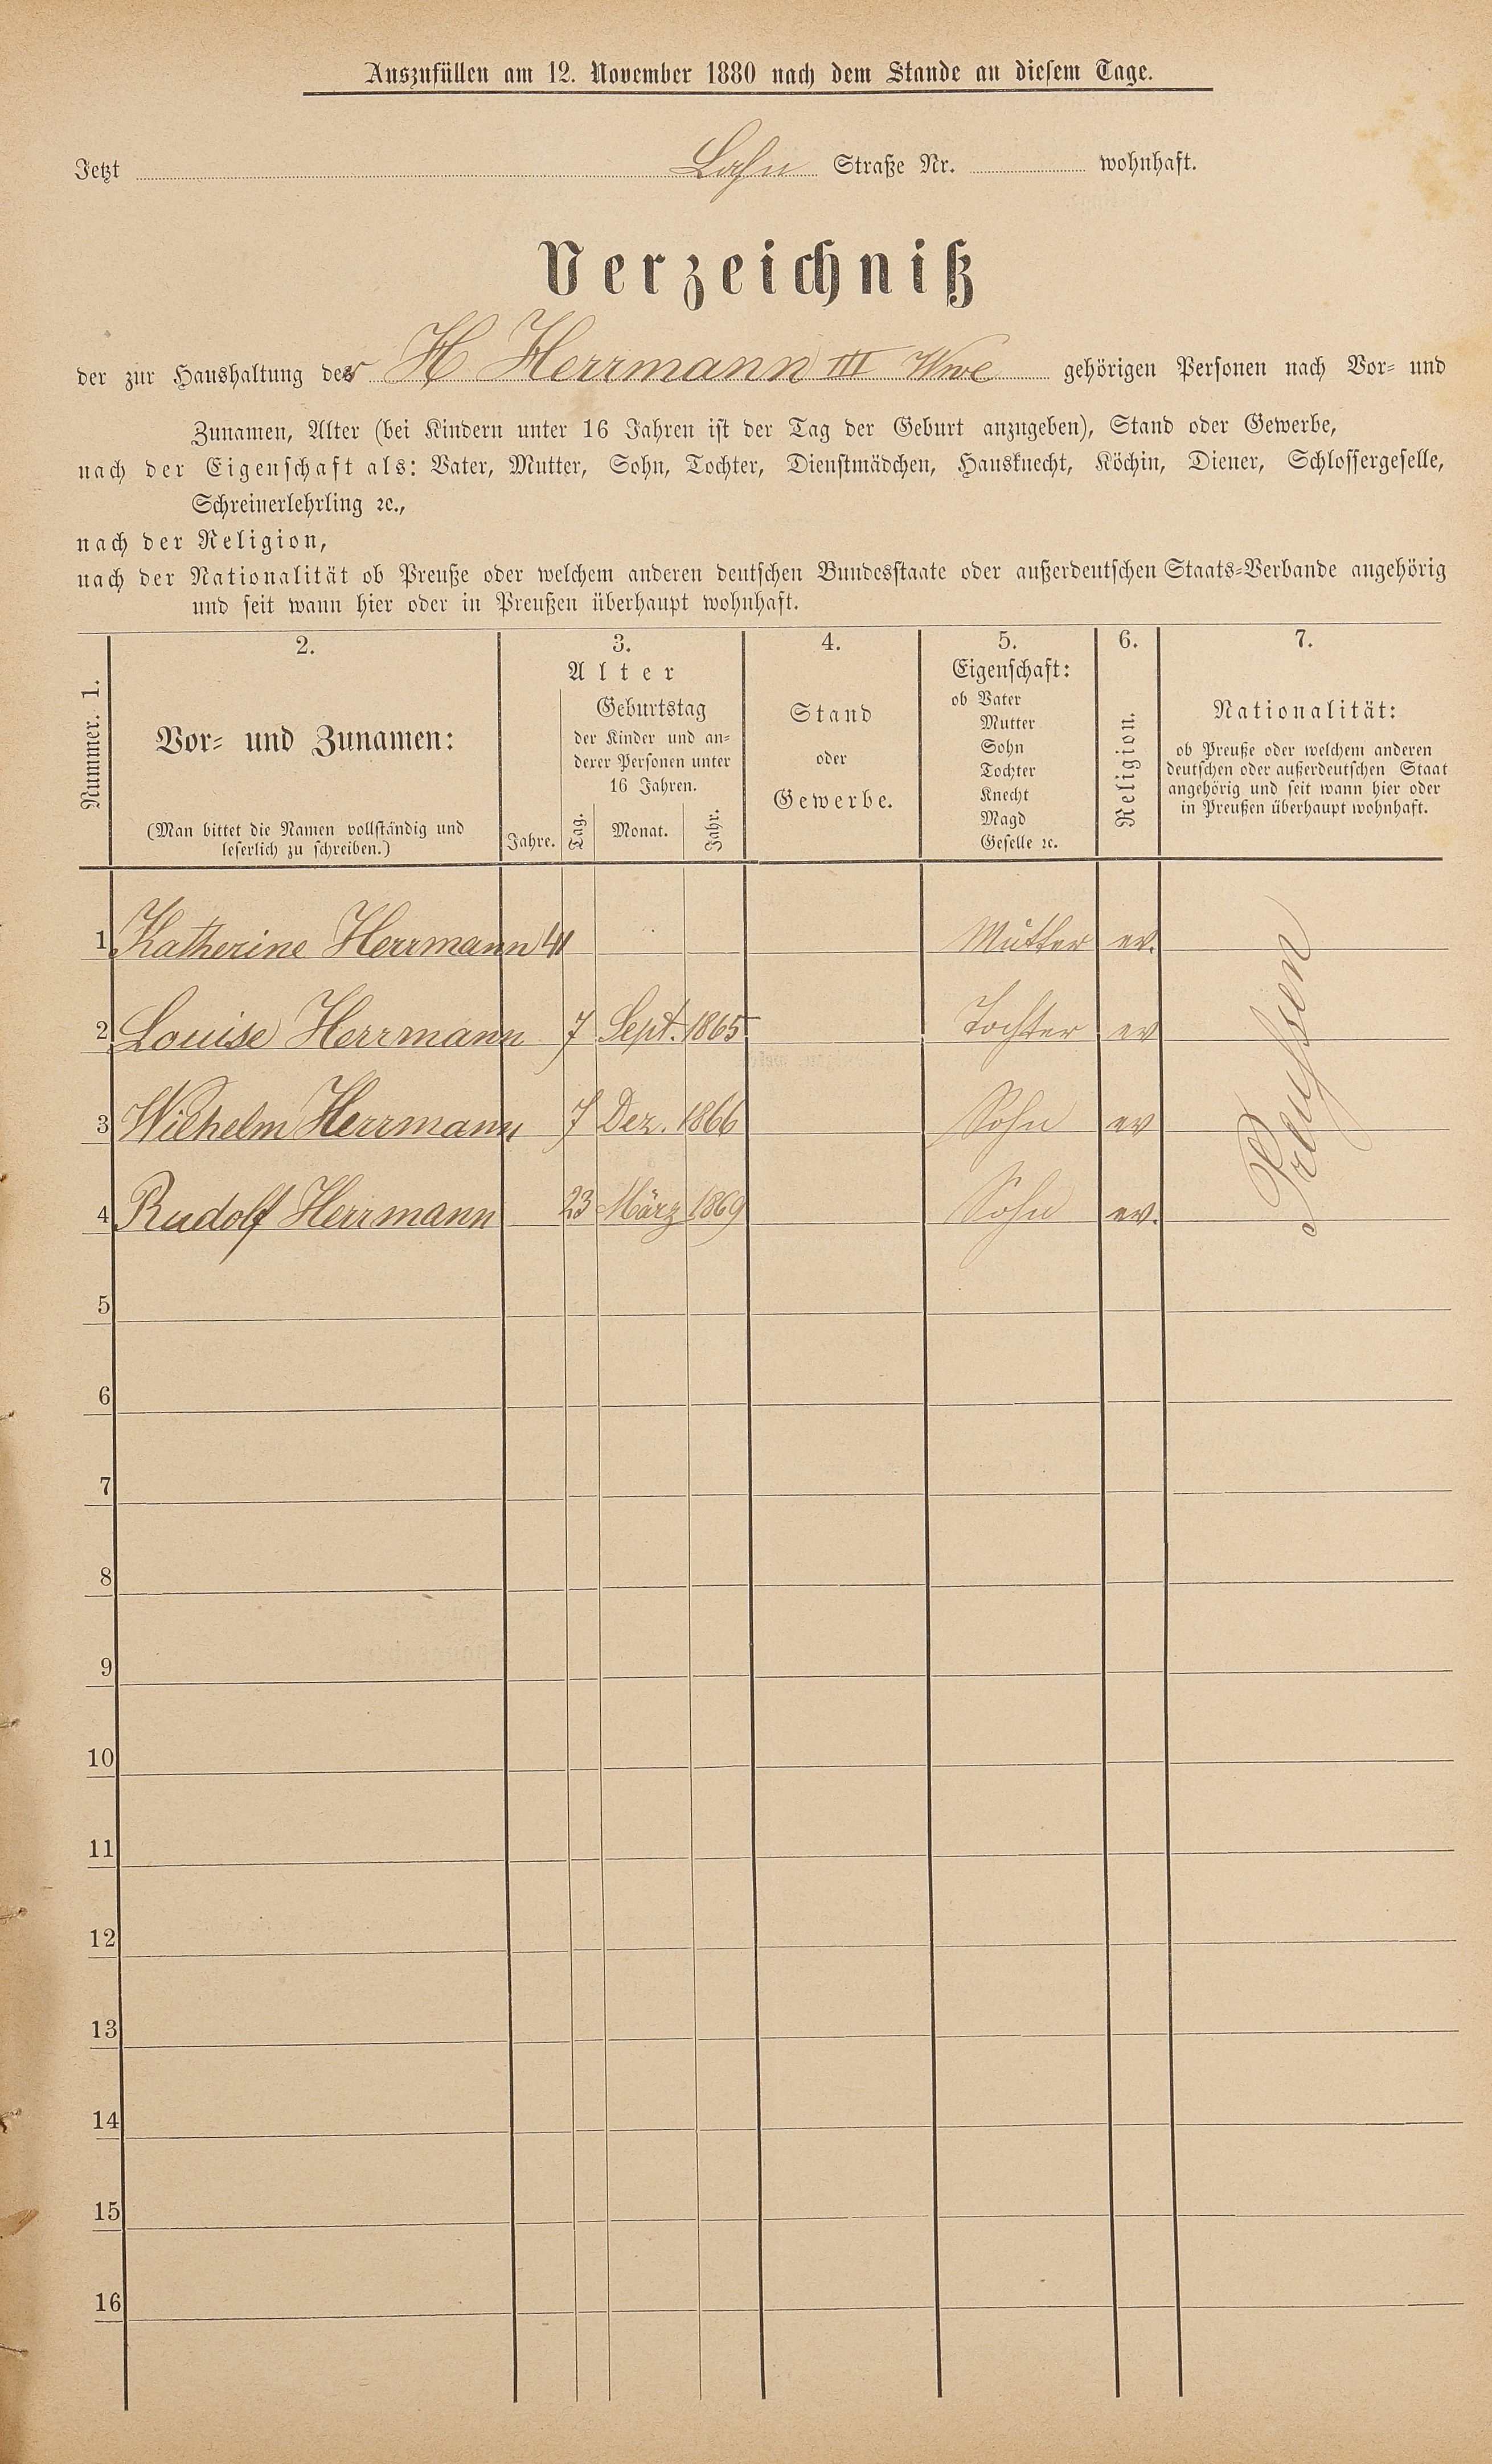 Auszufüllen am 12. November 1880 nach dem Stande an diesem Tage.
Jetzt Lahn Straße Nr. wohnhaft.
Verzeichniß
der zur Haushaltung der H Herrmann III Wwe gehörigen Personen nach Vor= und
Zunamen, Alter (bei Kindern unter 16 Jahren ist der Tag der Geburt anzugeben), Stand oder Gewerbe,
nach der Eigenschaft als: Vater, Mutter, Sohn, Tochter, Dienstmädchen, Hausknecht, Köchin, Diener, Schlossergeselle,
Schreinerlehrling ꝛc.,
nach der Religion,
nach der Nationalität ob Preuße oder welchem anderen deutschen Bundesstaate oder außerdeutschen Staats=Verbande angehörig
und seit wann hier oder in Preußen überhaupt wohnhaft.
Nummer. 1.
2.
Vor= und Zunamen:
(Man bittet die Namen vollständig und
leserlich zu schreiben.)
3.
Alter
Jahre.
Geburtstag
der Kinder und an=
derer Personen unter
16 Jahren.
Tag. Monat. Jahr.
4.
Stand
oder
Gewerbe.
5.
Eigenschaft:
ob Vater
Mutter
Sohn
Tochter
Knecht
Magd
Geselle ꝛc.
6.
Religion.
7.
Nationalität:
ob Preuße oder welchem anderen
deutschen oder außerdeutschen Staat
angehörig und seit wann hier oder
in Preußen überhaupt wohnhaft.
1 Katherine Herrmann 41 Mutter ev.
2 Louise Herrmann 7 Sept. 1865 Tochter ev
3 Wilhelm Herrmann 7 Dez. 1866 Sohn ev
4 Rudolf Herrmann 23 März 1869 Sohn ev.
Preußen
5
6
7
8
9
10
11
12
13
14
15
16